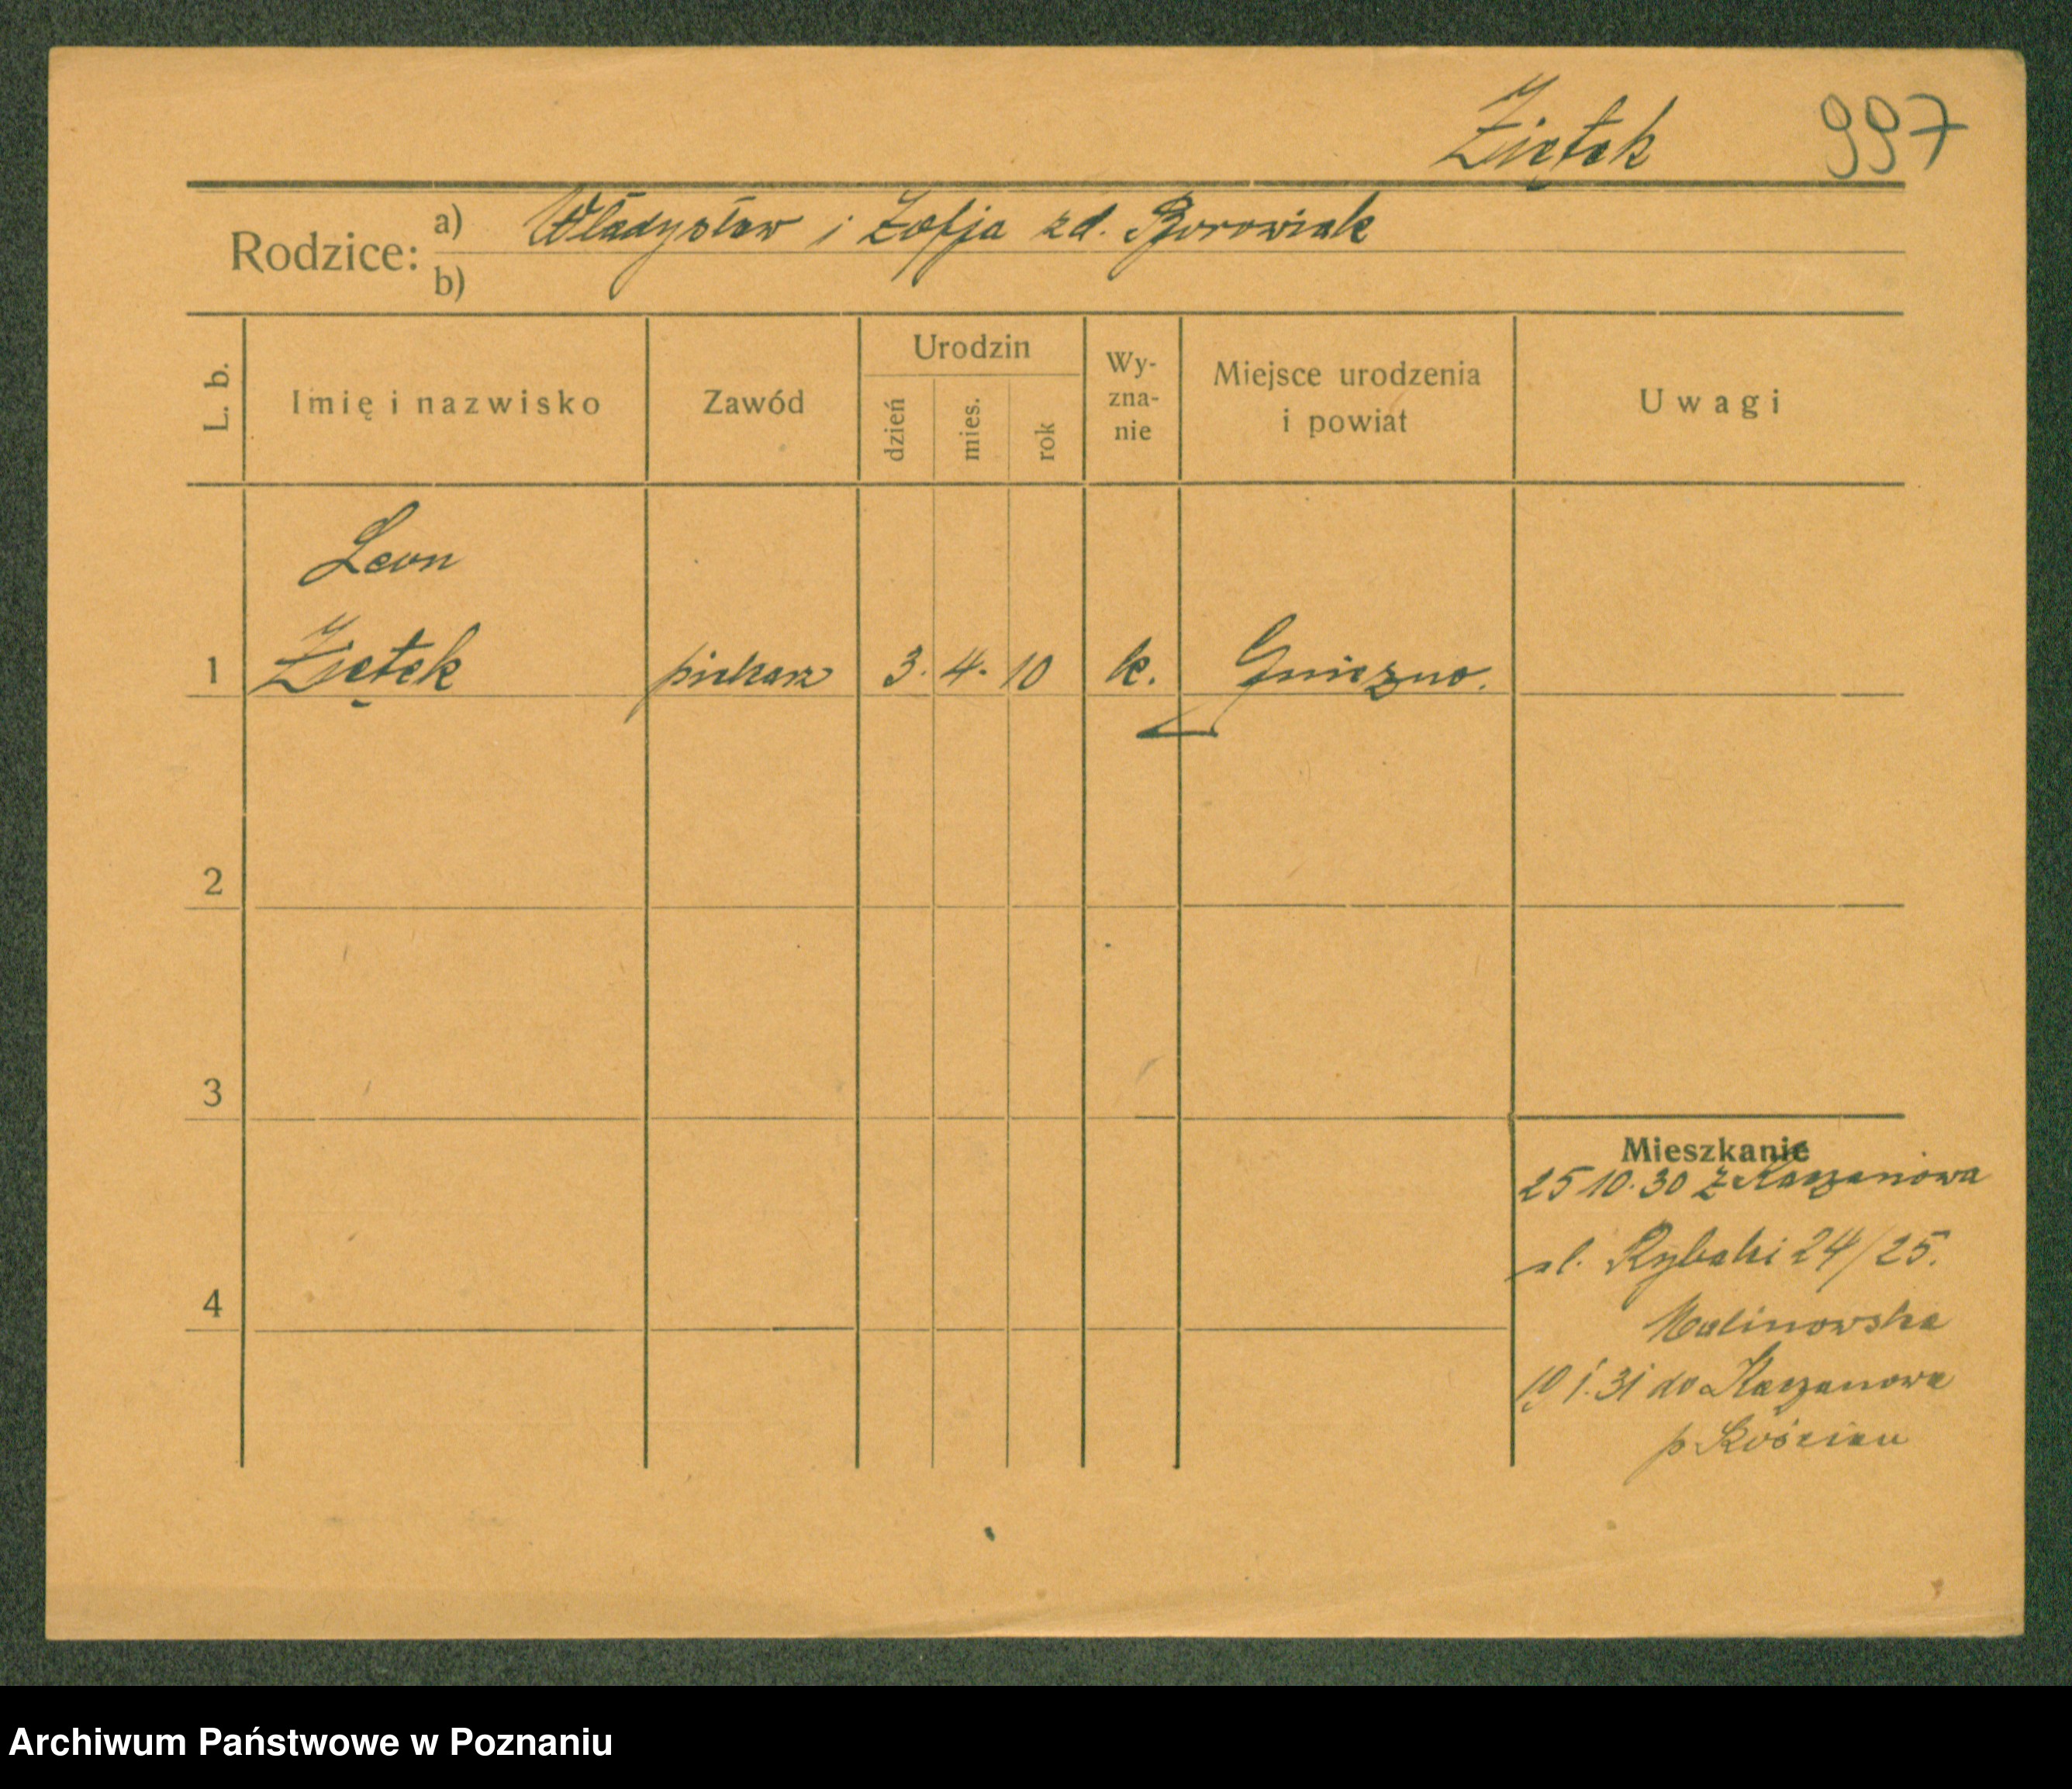 Ziętek 997
Rodzice: a) Władysław i Zofja zd. Borowiak
b)
L. b. Imię i nazwisko Zawód Urodzin dzień mies. rok Wy-zna-nie Miejsce urodzenia i powiat Uwagi
Leon
1 Ziętek piekarz 3. 4. 10 k. Gniezno.
2
3
Mieszkanie
25 10. 30 z
ul. Rybaki 24/25.
4
Malinowska
19 1. 31 do
p Kościan
Archiwum Państwowe w Poznaniu